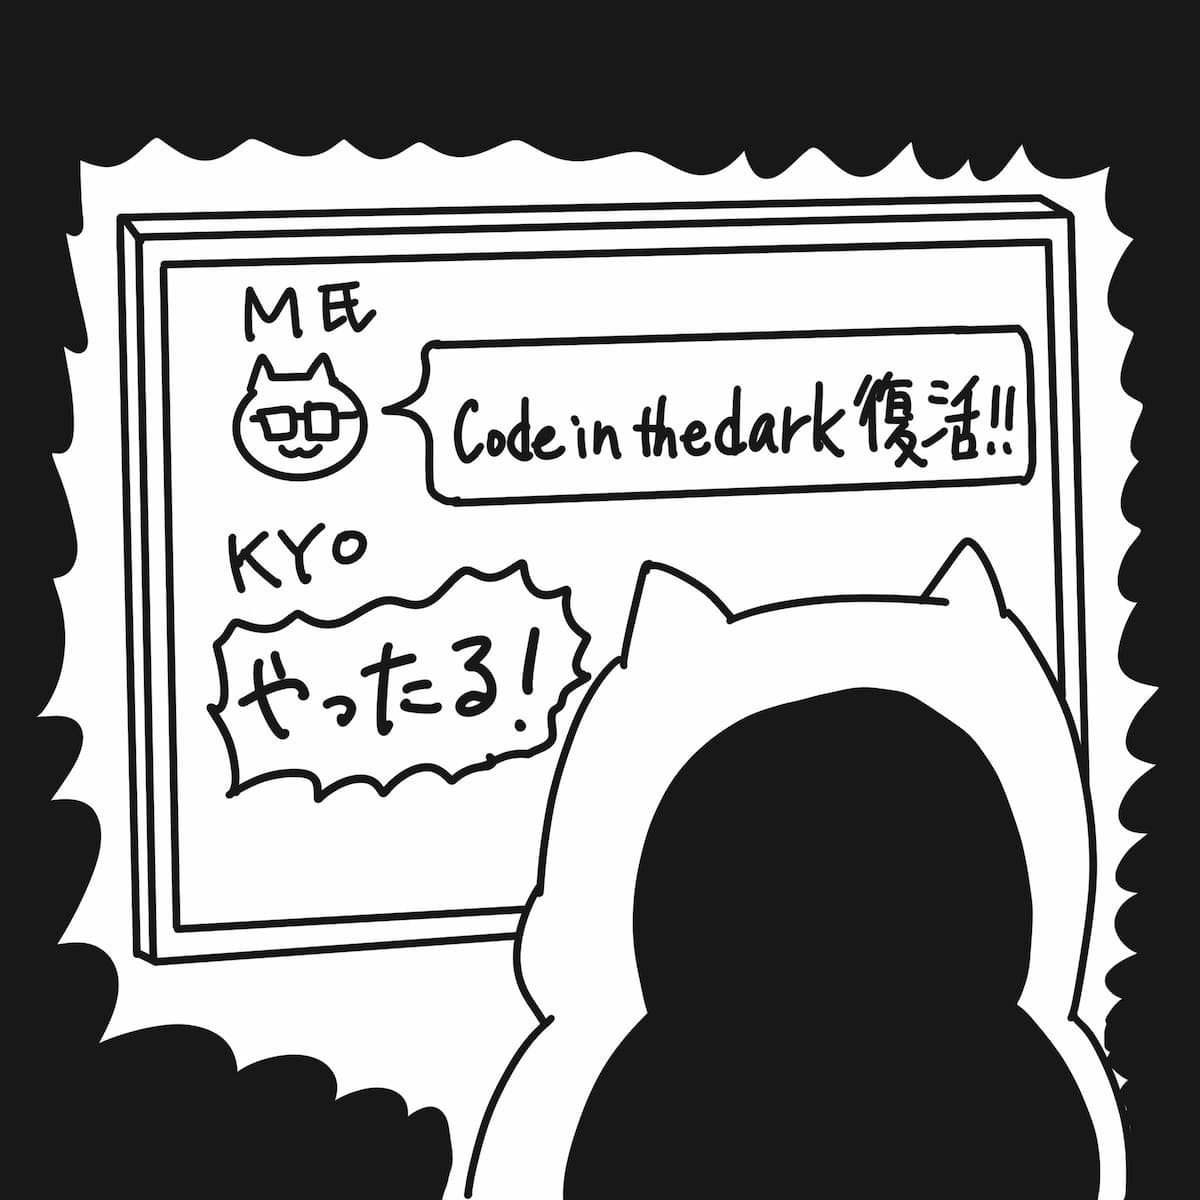 M氏
Code in the dark 復活!!
KYO
やったる!